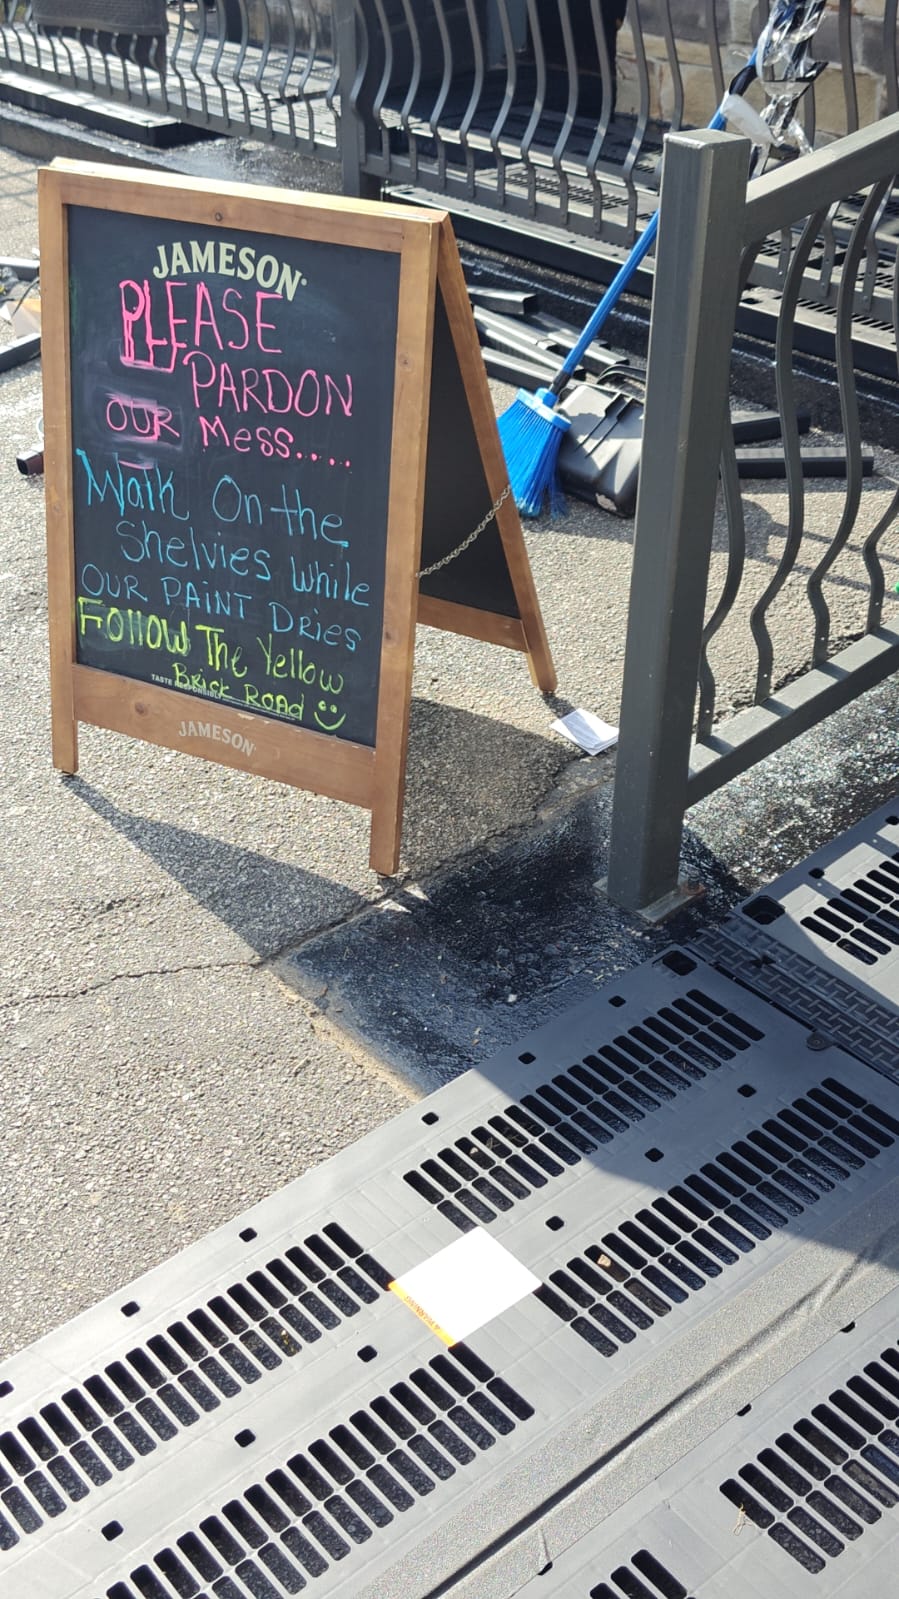 JAMESON
PLEASE
PARDON
OUR Mess.....
Walk On the
Shelvies while
OUR PAINT DRies
Follow The Yellow
Brick ROAd
TASTE RESPONSIBLY
JAMESON
WARNING